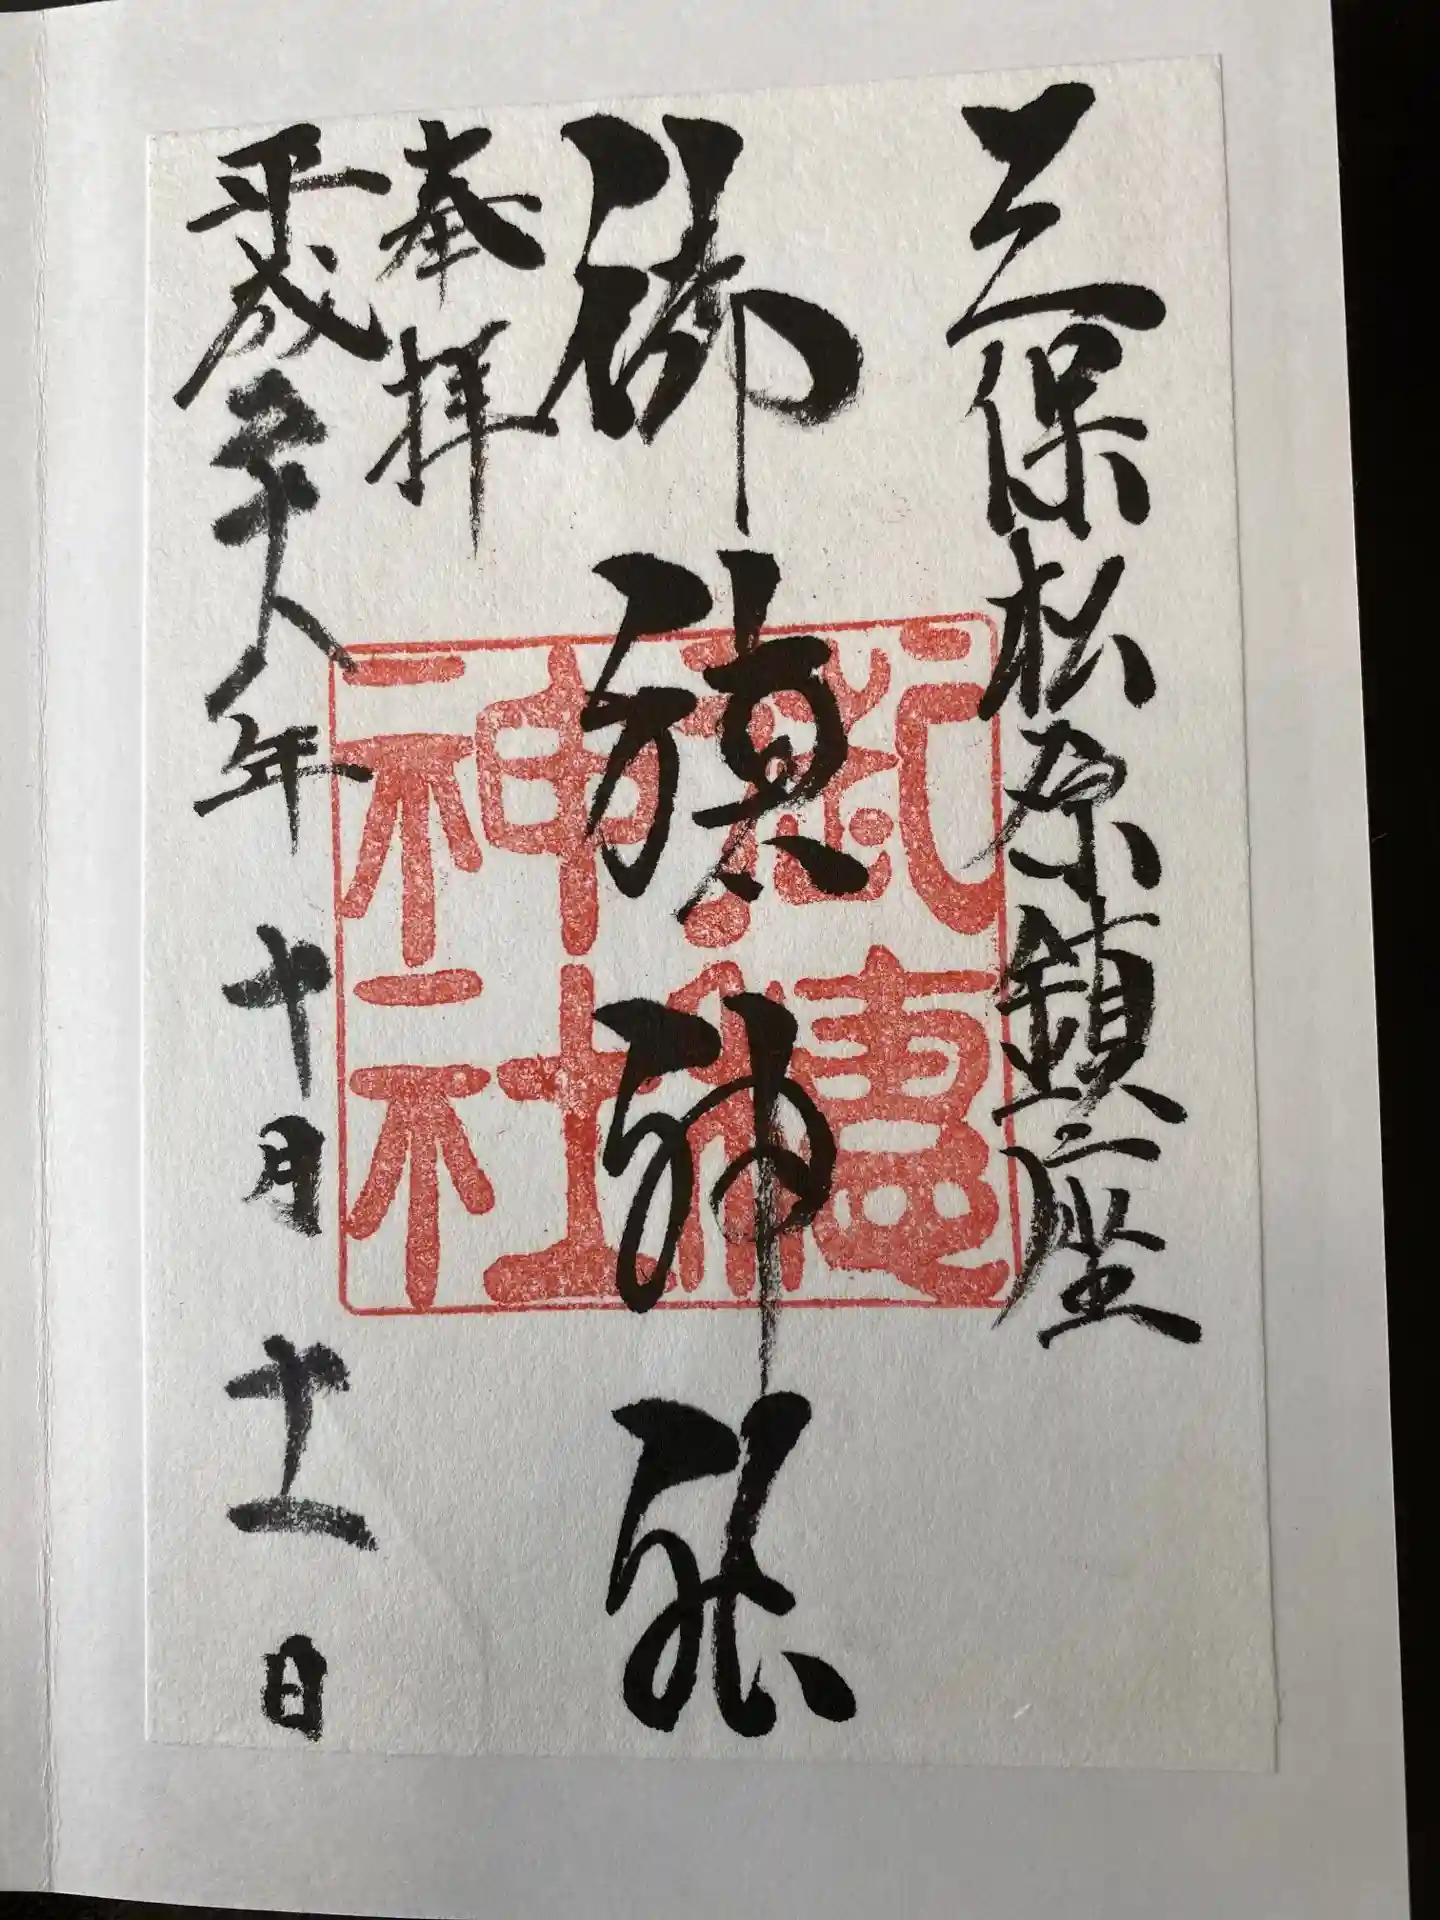 三保松原鎮座
御穂神社
奉拝
平成二十八年十月十一日
御穂神社